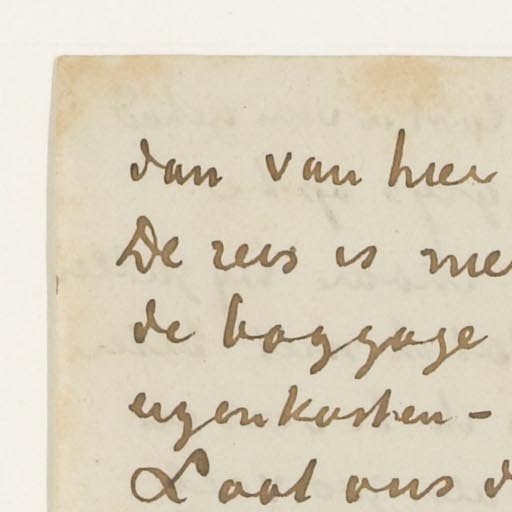 dan van hier
De reis is me
de baggage
eigen kosten –
Laat ons d